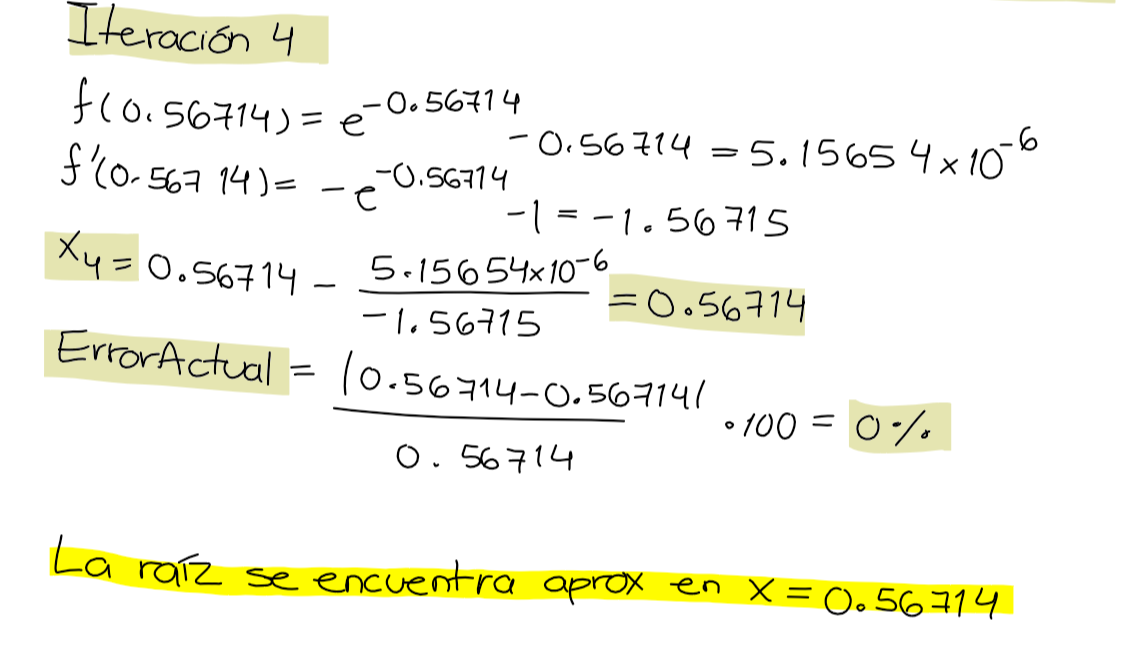 Iteración 4
f(0.56714) = e^-0.56714 - 0.56714 = 5.15654 x 10^-6
f'(0.56714) = -e^-0.56714 - 1 = -1.56715
x4 = 0.56714 - 5.15654x10^-6 / -1.56715 = 0.56714
ErrorActual = |0.56714-0.56714| / 0.56714 · 100 = 0%
La raíz se encuentra aprox en x = 0.56714